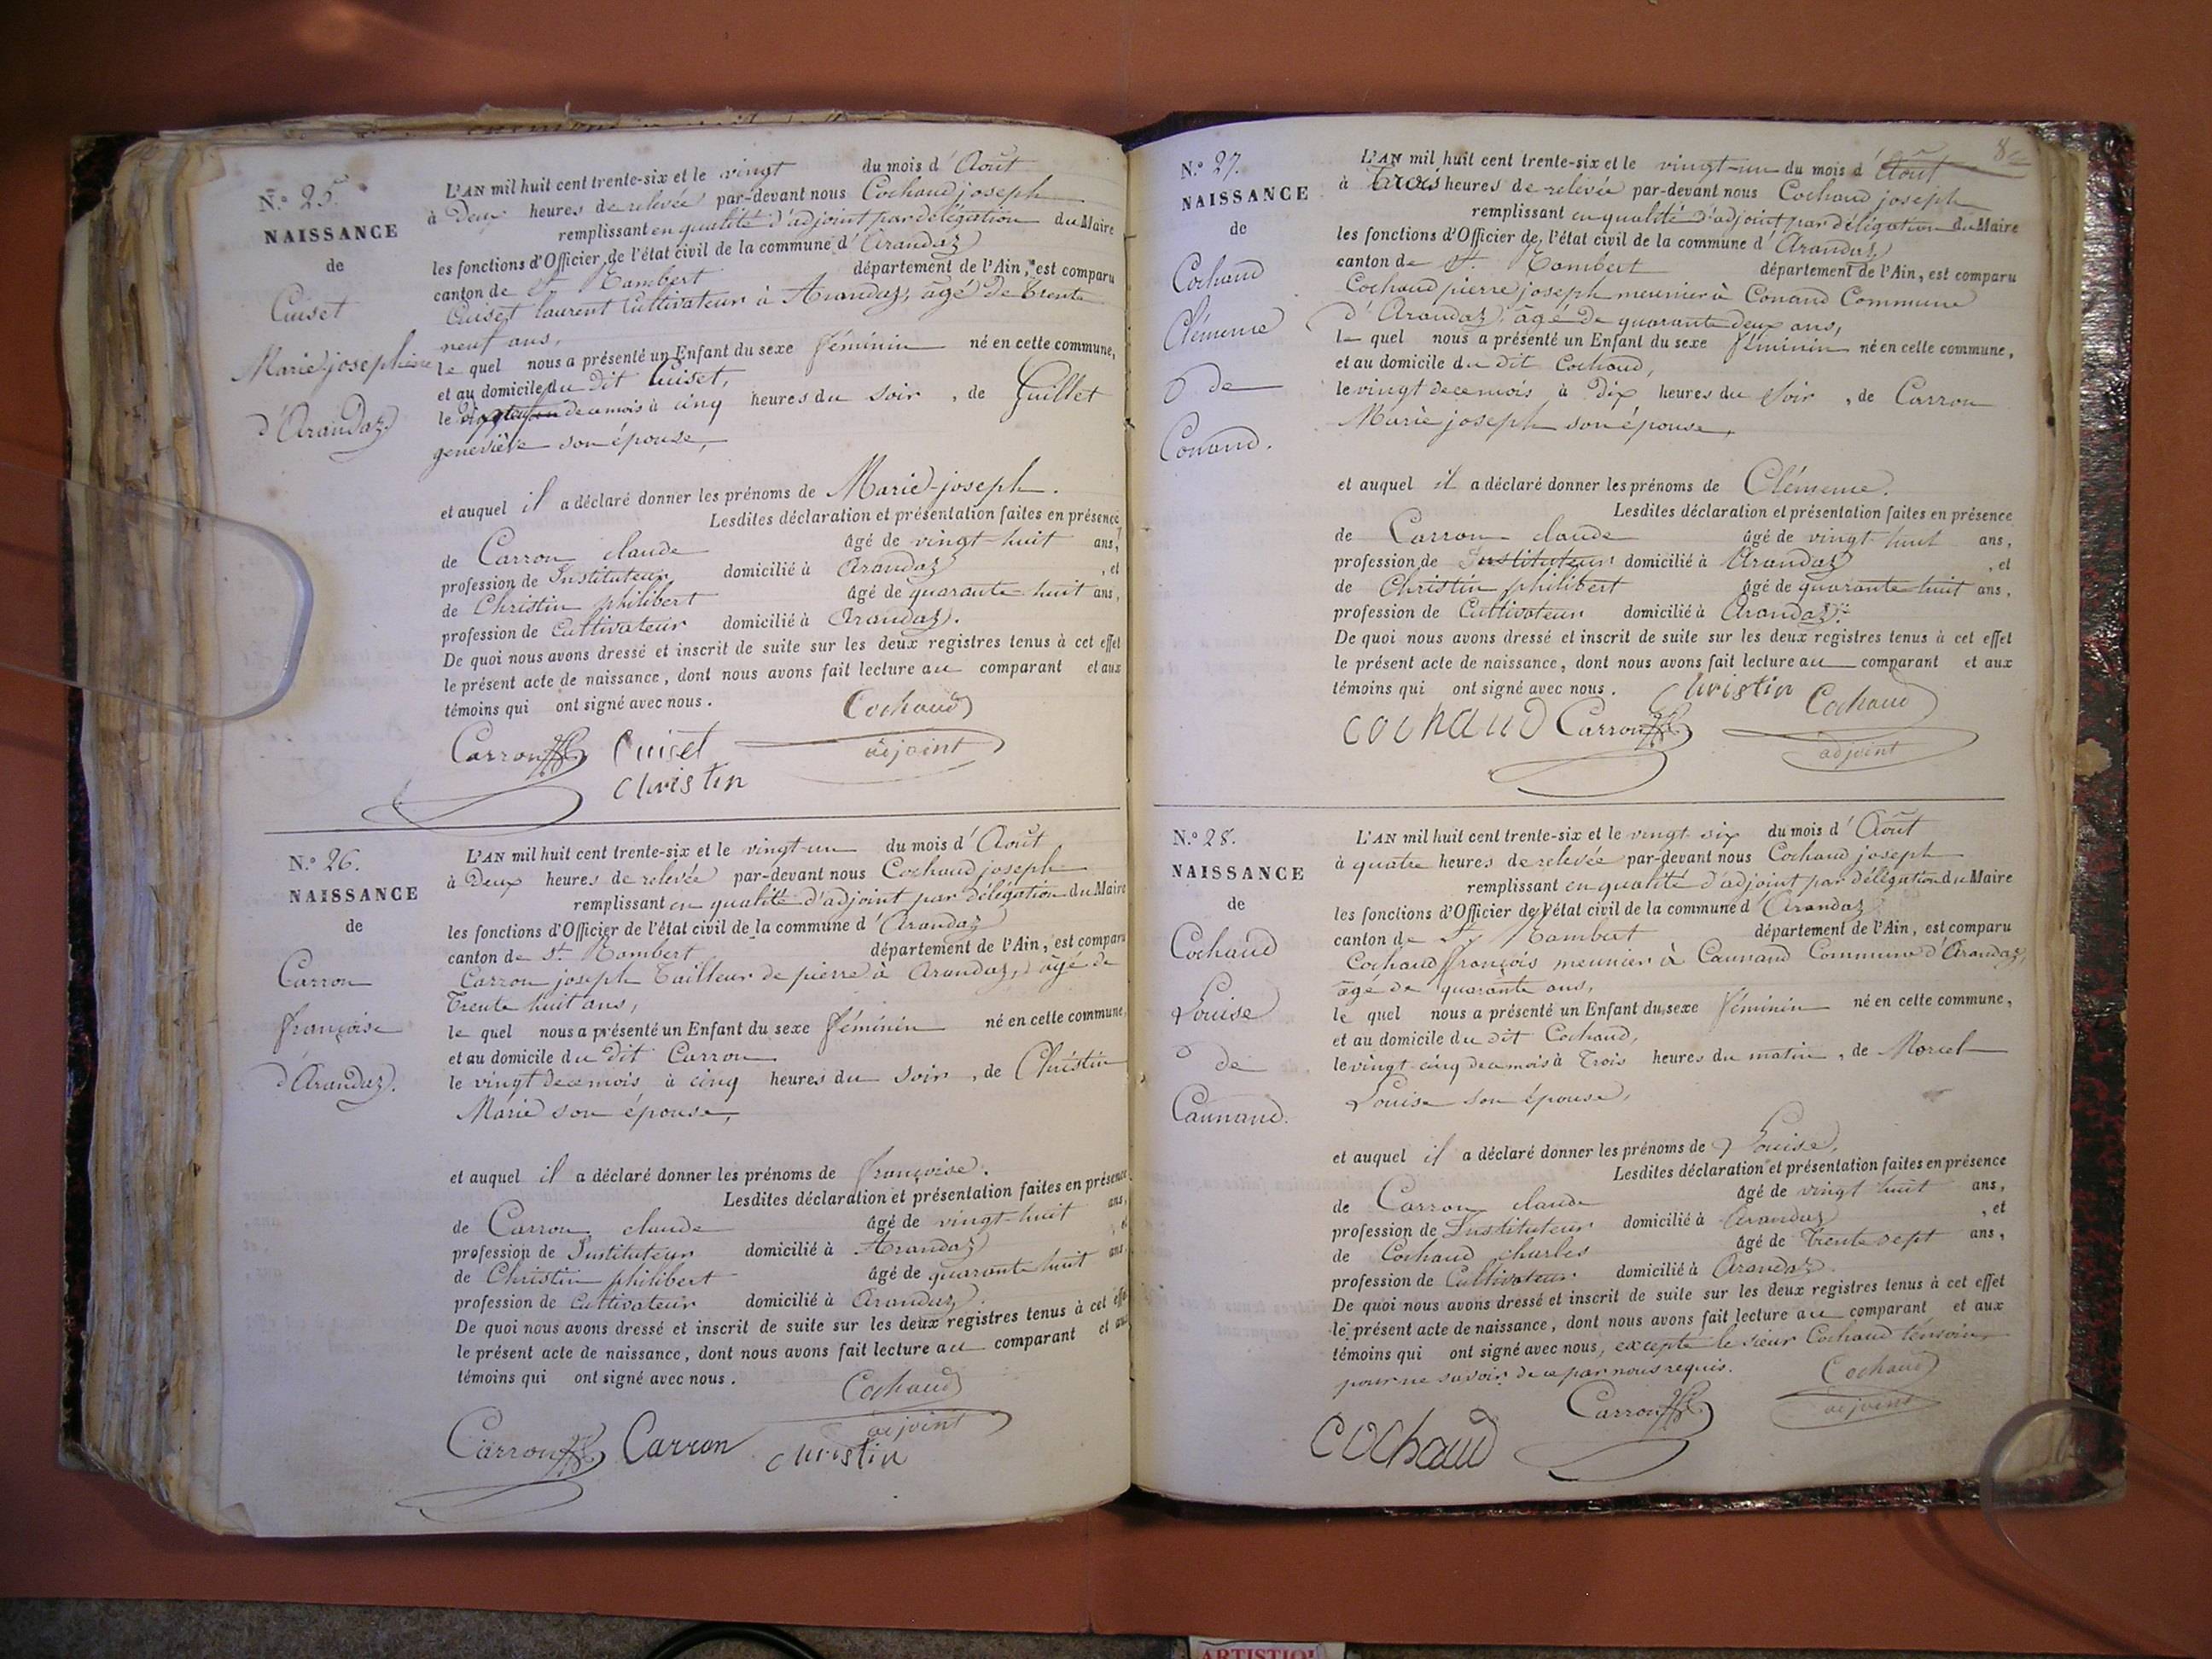 N.° 25.
NAISSANCE
de
Cuiset
Marie josephine
d'Arandaz
L'AN mil huit cent trente-six et le vingt du mois d'Août
à Deux heures de relevée par-devant nous Cochaud joseph
remplissant en qualité d'adjoint par délégation du Maire
les fonctions d'Officier de l'état civil de la commune d'Arandaz
canton de St Rambert département de l'Ain, est comparu
Cuiset laurent Cultivateur à Arandaz, âgé de trente
neuf ans,
le quel nous a présenté un Enfant du sexe féminin né en cette commune,
et au domicile du dit Cuiset,
le de ce mois à cinq heures du soir, de Guillet
geneviève son épouse,
et auquel il a déclaré donner les prénoms de Marie-joseph.
Lesdites déclaration et présentation faites en présence
de Carron claude âgé de vingt-huit ans,
profession de Instituteur domicilié à Arandaz, et
de Christin philibert âgé de quarante-huit ans,
profession de Cultivateur domicilié à Arandaz.
De quoi nous avons dressé et inscrit de suite sur les deux registres tenus à cet effet
le présent acte de naissance, dont nous avons fait lecture au comparant et aux
témoins qui ont signé avec nous.
Cochaud
Carron Cuiset adjoint
christin
N.° 26.
NAISSANCE
de
Carron
françoise
d'Arandaz.
L'AN mil huit cent trente-six et le vingt-un du mois d'Août
à Deux heures de relevée par-devant nous Cochaud joseph
remplissant en qualité d'adjoint par délégation du Maire
les fonctions d'Officier de l'état civil de la commune d'Arandaz
canton de St. Rambert département de l'Ain, est comparu
Carron joseph Tailleur de pierre à Arandaz, âgé de
Trente huit ans,
le quel nous a présenté un Enfant du sexe féminin né en cette commune,
et au domicile du dit Carron
le vingt de ce mois à cinq heures du soir, de Christin
Marie son épouse,
et auquel il a déclaré donner les prénoms de françoise.
Lesdites déclaration et présentation faites en présence
de Carron claude âgé de vingt-huit ans,
profession de Instituteur domicilié à Arandaz, et
de Christin philibert âgé de quarante huit ans
profession de Cultivateur domicilié à Arandaz.
De quoi nous avons dressé et inscrit de suite sur les deux registres tenus à cet effet
le présent acte de naissance, dont nous avons fait lecture au comparant et aux
témoins qui ont signé avec nous.
Cochaud
adjoint
Carron Carron christin
N.° 27.
NAISSANCE
de
Cochaud
Clémence
de
Conand.
L'AN mil huit cent trente-six et le vingt-un du mois d'Août
à trois heures de relevée par-devant nous Cochaud joseph
remplissant en qualité d'adjoint par délégation du Maire
les fonctions d'Officier de l'état civil de la commune d'Arandaz
canton de St. Rambert département de l'Ain, est comparu
Cochaud pierre joseph meunier à Conand Commune
d'Arandaz, âgé de quarante deux ans,
le quel nous a présenté un Enfant du sexe féminin né en cette commune,
et au domicile du dit Cochaud,
le vingt de ce mois à Dix heures du soir, de Carron
Marie joseph son épouse,
et auquel il a déclaré donner les prénoms de Clémence.
Lesdites déclaration et présentation faites en présence
de Carron claude âgé de vingt-huit ans,
profession de Instituteur domicilié à Arandaz, et
de Christin philibert âgé de quarante-huit ans,
profession de Cultivateur domicilié à Arandaz.
De quoi nous avons dressé et inscrit de suite sur les deux registres tenus à cet effet
le présent acte de naissance, dont nous avons fait lecture au comparant et aux
témoins qui ont signé avec nous. christin Cochaud
cochaud Carron
adjoint
N.° 28.
NAISSANCE
de
Cochaud
Louise
de
Caunand.
L'AN mil huit cent trente-six et le vingt six du mois d'Août
à quatre heures de relevée par-devant nous Cochaud joseph
remplissant en qualité d'adjoint par délégation du Maire
les fonctions d'Officier de l'état civil de la commune d'Arandaz
canton de St Rambert département de l'Ain, est comparu
Cochaud françois meunier à Caunand Commune d'Arandaz,
âgé de quarante ans,
le quel nous a présenté un Enfant du sexe féminin né en cette commune,
et au domicile du dit Cochaud,
le vingt cinq de ce mois à Trois heures du matin, de Morcel
Louise son épouse,
et auquel il a déclaré donner les prénoms de Louise,
Lesdites déclaration et présentation faites en présence
de Carron claude âgé de vingt huit ans,
profession de Instituteur domicilié à Arandaz, et
de Cochaud charles âgé de trente sept ans,
profession de Cultivateur domicilié à Arandaz.
De quoi nous avons dressé et inscrit de suite sur les deux registres tenus à cet effet
le présent acte de naissance, dont nous avons fait lecture au comparant et aux
témoins qui ont signé avec nous, excepté le sieur Cochaud témoin,
pour ne savoir de ce par nous requis.
Cochaud
Carron adjoint
cochaud